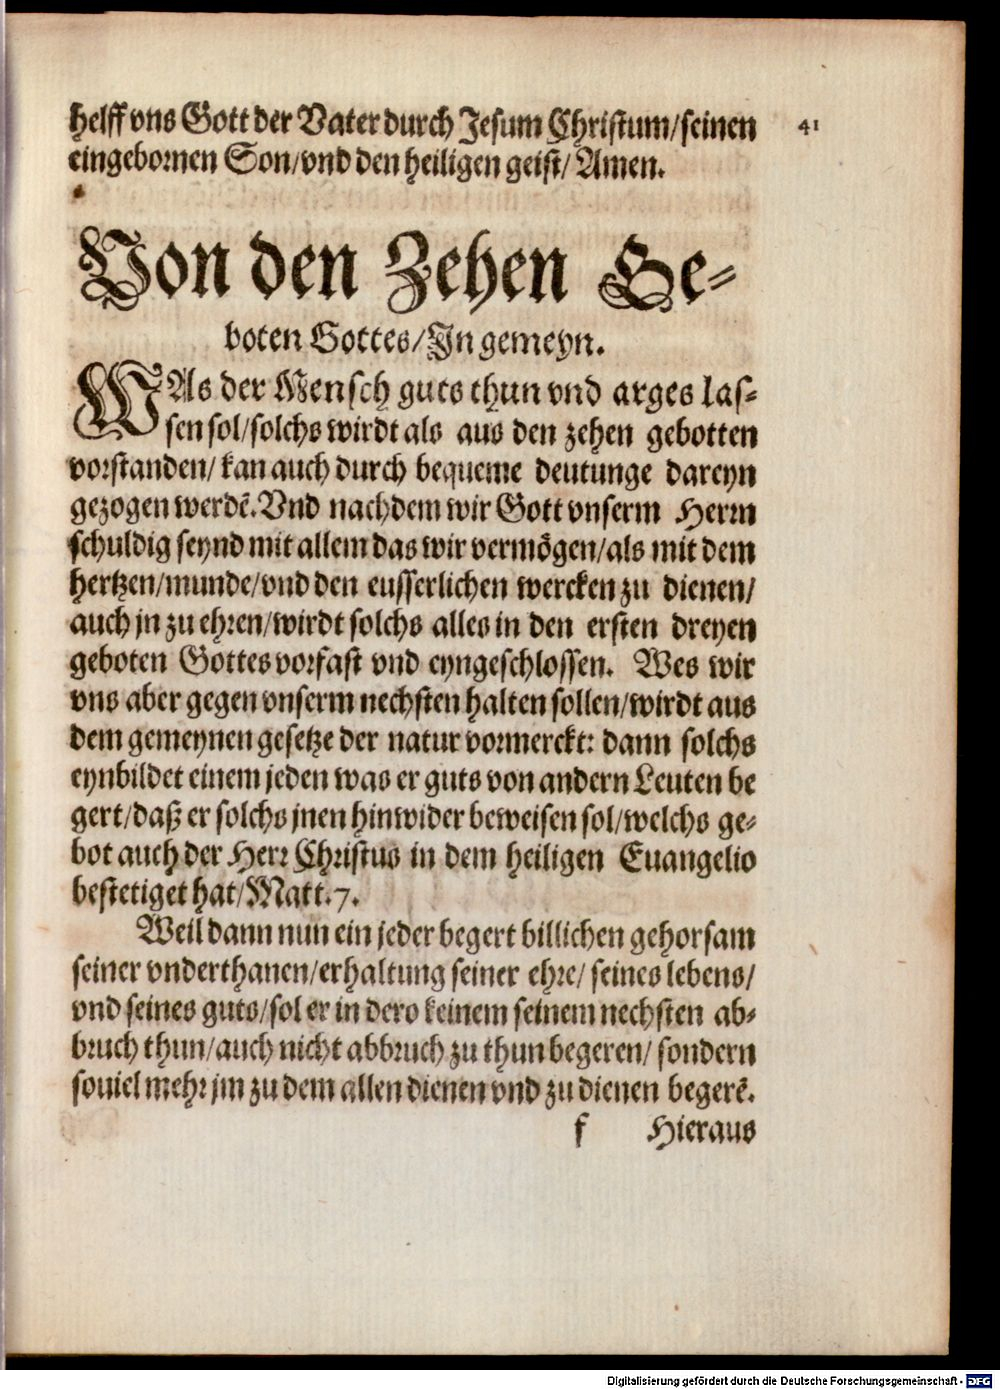 helff vns Gott der Vater durch Jesum Christum/seinen
41
eingebornen Son/vnd den heiligen geist/Amen.
Von den Zehen Ge-
boten Gottes/Jn gemeyn.
WAs der Mensch guts thun vnd arges las-
sen sol/solchs wirdt als aus den zehen gebotten
vorstanden/kan auch durch bequeme deutunge dareyn
gezogen werdē. Vnd nachdem wir Gott vnserm Herrn
schuldig seynd mit allem das wir vermögen/als mit dem
hertzen/munde/vnd den eusserlichen wercken zu dienen/
auch jn zu ehren/wirdt solchs alles in den ersten dreyen
geboten Gottes vorfast vnd eyngeschlossen. Wes wir
vns aber gegen vnserm nechsten halten sollen/wirdt aus
dem gemeynen gesetze der natur vormerckt: dann solchs
eynbildet einem jeden was er guts von andern Leuten be
gert/daß er solchs jnen hinwider beweisen sol/welchs ge-
bot auch der Herr Christus in dem heiligen Euangelio
bestetiget hat/Matt.7.
Weil dann nun ein jeder begert billichen gehorsam
seiner vnderthanen/erhaltung seiner ehre/seines lebens/
vnd seines guts/sol er in dero keinem seinem nechsten ab-
bruch thun/auch nicht abbruch zu thun begeren/sondern
souiel mehr jm zu dem allen dienen vnd zu dienen begerē.
f Hieraus
Digitalisierung gefördert durch die Deutsche Forschungsgemeinschaft - DFG